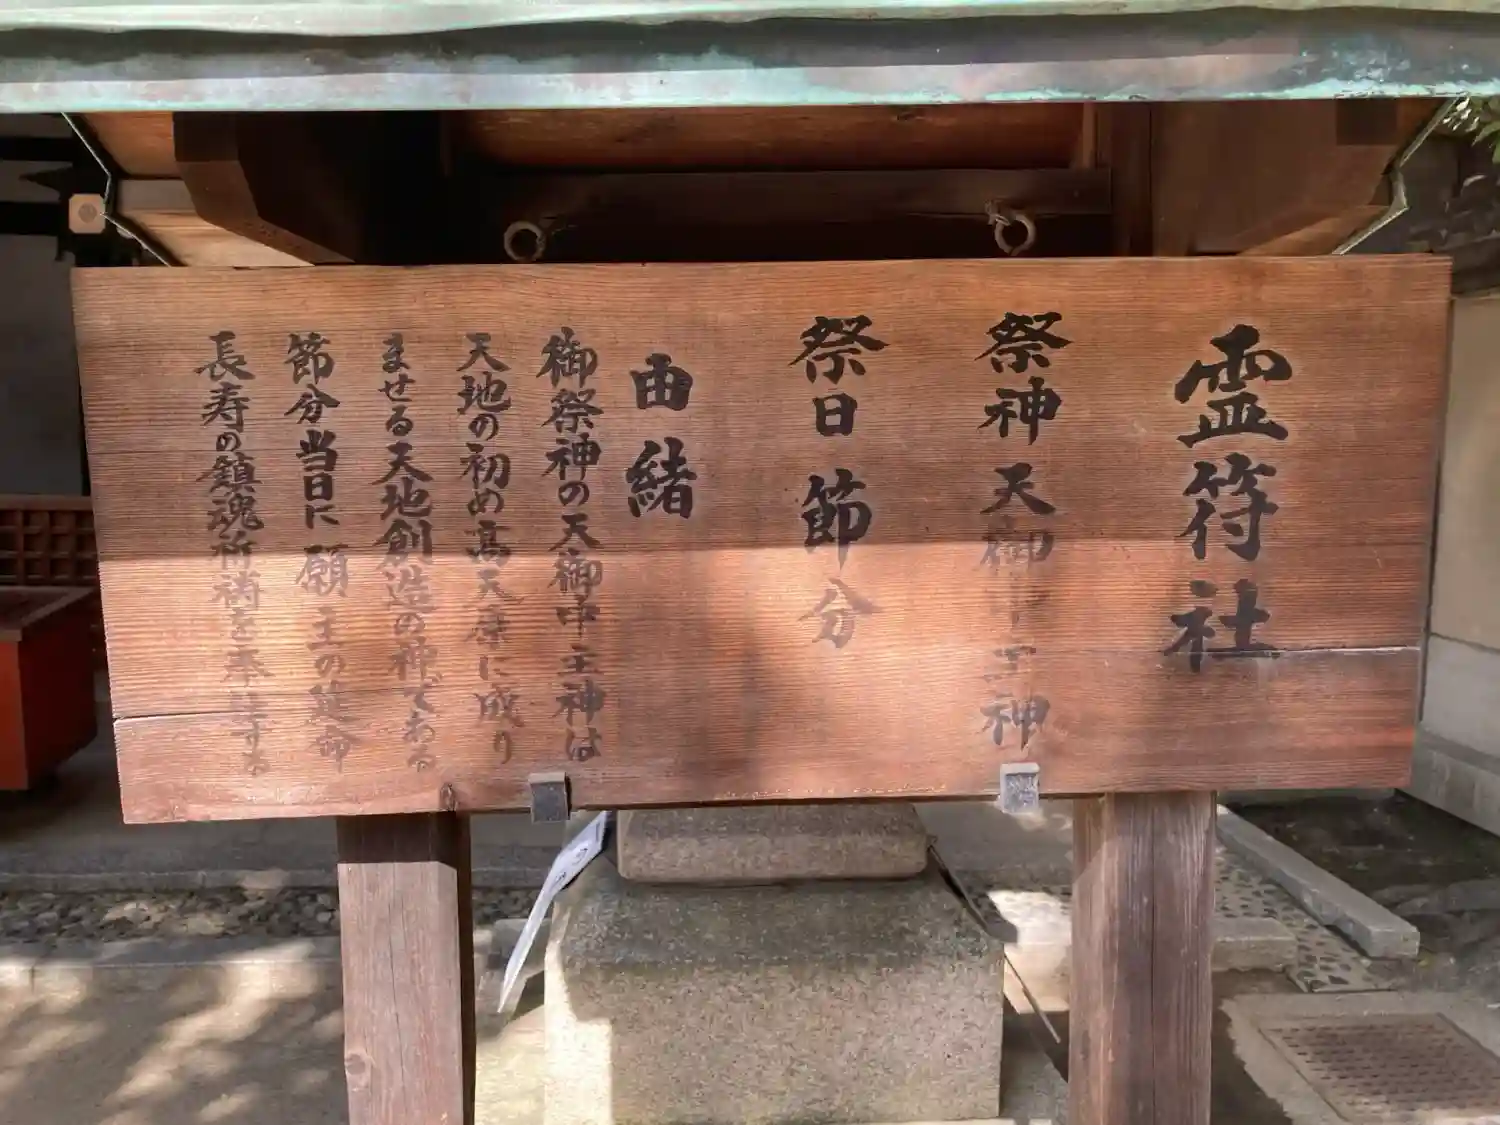 霊符社
祭神 天御中主神
祭日 節分
由緒
御祭神の天御中主神は
天地の初め高天原に成り
ませる天地創造の神である
節分当日に願主の延命
長寿の鎮魂祈祷を奉仕する